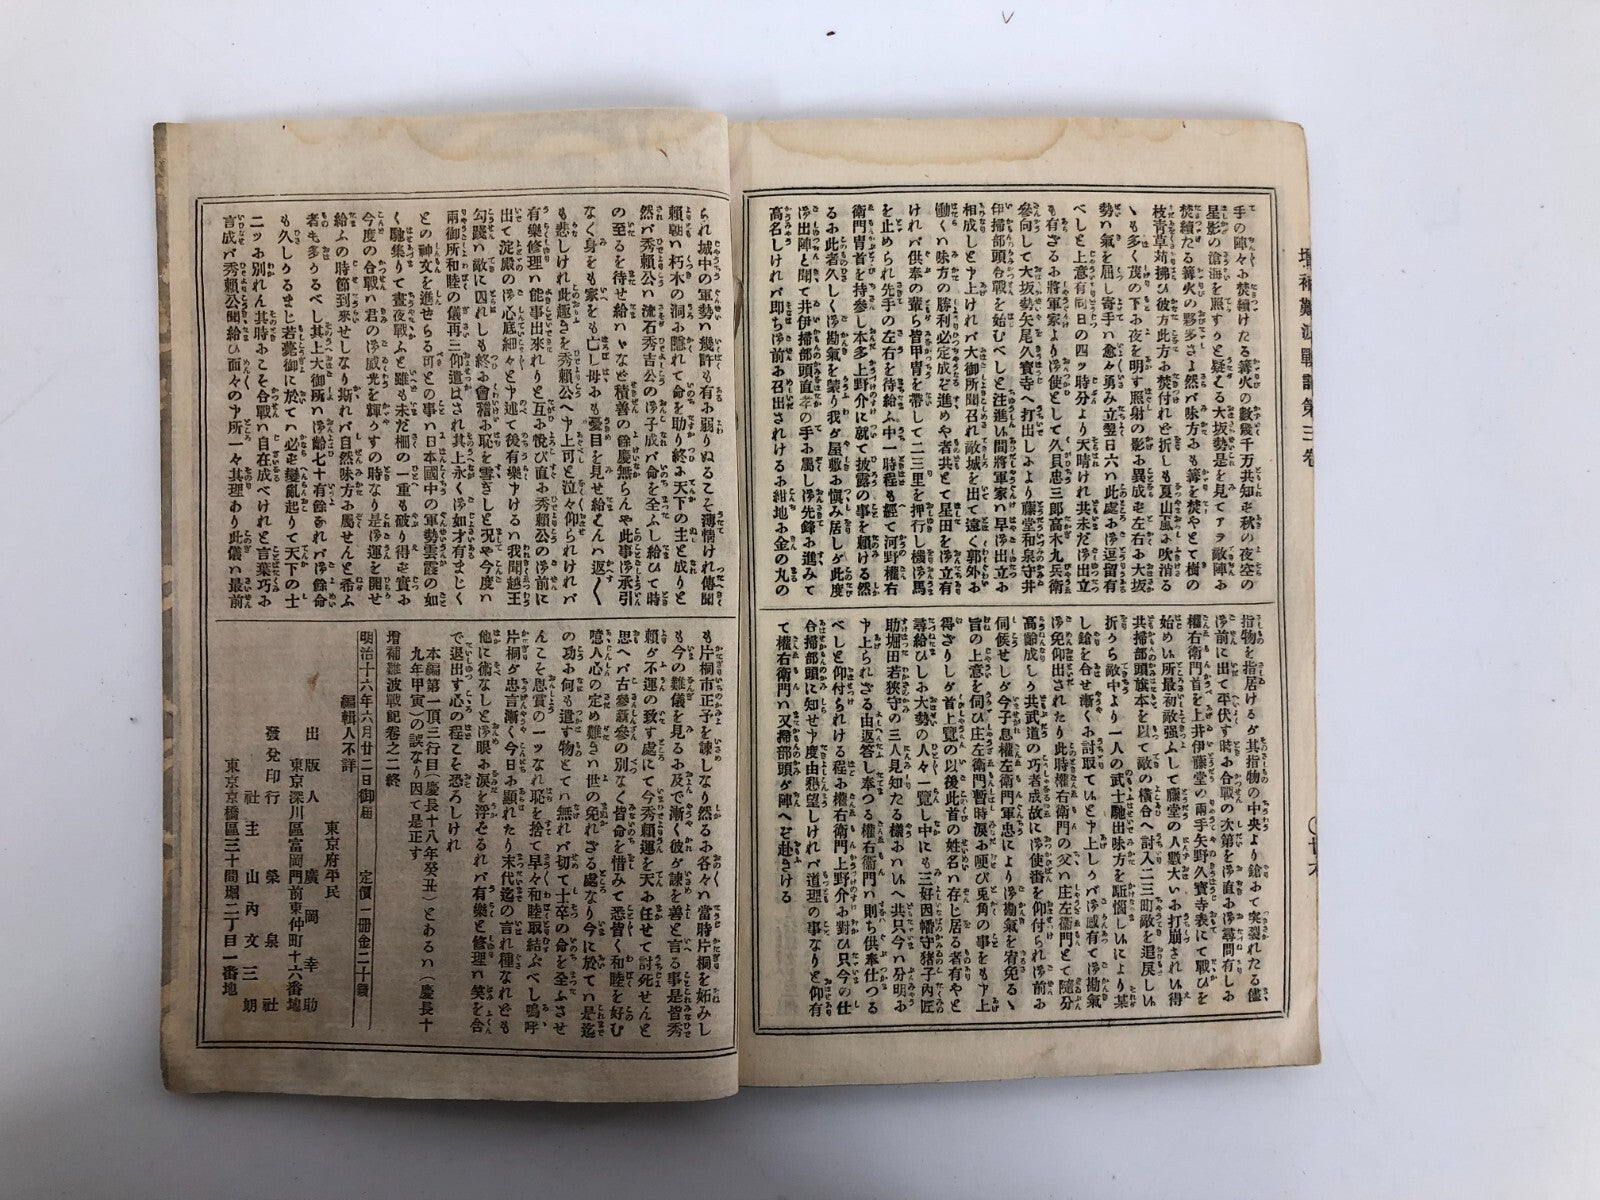 増補難波戰記第三卷
手の陣々お焚續けたる篝火の數幾千万共知を秋の夜空の
星影の滄海を照すかと疑くる大坂勢是を見てアヲ敵陣お
焚續たる篝火の夥多さよ然バ味方おも篝を焚やとて樹の
枝靑草苅拂ひ彼方此方お焚付れを折しも夏山嵐お吹消る
勢い氣を屈し寄手い愈々勇み立翌日六い此處お御逗留有
べしを上意有同日の四ッ時分より天晴けれ共未だ御出立
も有ざるお將軍家より御使として久貝忠三郎高木九兵衛
參向して大坂勢矢尾久寳寺へ打出しより藤堂和泉守井
伊掃部頭合戰を始むべしと注進い間將軍家い早御出立お
相成しとヤ上けれバ大御所聞召れ敵城を出て遠く郭外お
働くい味方の勝利必定成ぞ進めや者共とて星田を御立有
けれバ供奉の輩ら皆甲冑を帶して二三里を押行し機御馬
を止められ先手の左右を待給ふ中一時程も經て河野權右
衛門冑首を持參し本多上野介に就て披露の事を頼ける然
るお此者久しく御勘氣を蒙り我が屋敷お愼み居しが此度
御出陣と聞て井伊掃部頭直孝の手お屬し御先鋒お進みて
高名しけれバ即ち御前お召出されけるお紺地お金の丸の
指物を指居けるが其指物の中央より鎗おて突裂れたる儘
御前に出て平伏す時お合戰の次第を御直お御尋問有しお
權右衛門首を上井伊藤堂の兩手矢野久寳寺表にて戰ひを
始めい所最初敵强ふして藤堂の人數大いお打崩されい得
共掃部頭旗本を以て敵の橫合へ討入二三町敵を追戾しい
折から敵中より一人の武士馳出味方を駈惱しいにより某
し鎗を合せ漸くお討取ていとヤ上しかバ御感有て御勘氣
御免仰出されたり此時權右衛門の父い庄左衛門とて隨分
高齡成しか共武道の巧者成故に御使番を仰付られ御前お
伺候せしが今子息權左衛門軍忠により御勘氣を宥免るゝ
旨の上意を伺ひ庄左衛門暫時涙お哽び兎角の事をもヤ上
得ざりしが首上覽の以後此首の姓名い存じ居る者有やと
尋給ひしお大勢の人々一覽し中にも三好因幡守猪子内匠
助堀田若狹守の三人見知たる樣おいへ共只今い分明お
ヤ上られざる由返答し奉つる權右衛門い則ち供奉仕つる
べしと仰付られける程お權右衛門上野介お對ひ只今の仕
合掃部頭に知せヤ度由懇望しけれバ道理の事なりと仰有
て權右衛門い又掃部頭が陣へぞ赴きける
られ城中の軍勢い幾許も有お弱りぬるこそ薄情けれ傳聞
頼朝い朽木の洞お隱れて命を助り終お天下の主と成りと
然バ秀頼公い流石秀吉公の御子成バ命を全ふし給ひて時
の至るを待せ給いヾなど積善の餘慶無らんや此事御承引
なく身をも家をも亡し母おも憂目を見せ給とんい返く
も悲しけれ此趣きを秀頼公へヤ上可と泣々仰られけれバ
有樂修理い能事出來れりと互お悅び直お秀頼公の御前に
出て淀殿の御心底細々とヤ述て後有樂ヤけるい我聞越王
勾踐い敵に囚れしも終お會稽お恥を雪ぎしと况や今度い
兩御所和睦の儀再三仰遣はされ其上永く御如才有まじく
との神文を進せらる可との事い日本國中の軍勢雲霞の如
く馳集りて晝夜戰ふと雖も未だ柵の一重も破り得を實お
今度の合戰い君の御威光を輝かすの時なり是御運を開せ
給ふの時節到來せしなり斯れバ自然味方お屬せんと希ふ
者も多かるべし其上大御所い御齡七十有餘おれバ御餘命
も久しかるまじ若薨御に於てい必を變亂起りて天下の士
二ッお別れん其時おこそ合戰い自在成べけれと言葉巧お
言成バ秀頼公聞給ひ面々のヤ所一々其理あり此儀い最前
も片桐市正予を諫しなり然るお各々い當時片桐を妬みし
も今の難儀を見るお及で漸く彼が諫を善と言る事是皆秀
頼が不運の致す處にて今秀頼運を天お任せて討死せんと
思へバ古參新參の別なく皆命を惜みて悉皆く和睦を好む
噫人心の定め難き い世の免れざる處なり今に於てい是迄
の功お何も遣す物とてい無れバ切て士卒の命を全ふさせ
んこそ恩賞の一ッなれ恥を捨て早々和睦取結ぶべし嗚呼
片桐が忠言漸く今日お顯れたり末代迄の言れ種なれども
他に術なしと御眼お涙を浮そるれバ有樂と修理い笑を含
で退出す心の程こそ恐ろしけれ
本編第一頂三行目(慶長十八年癸丑)とあるい(慶長十
九年甲寅)の誤なり因て是正す
增補難波戰記卷之二終
明治十六年六月廿二日御届　定價一冊金二十錢
編輯人不詳
東京府平民
出版人　廣岡幸助
東京深川區富岡門前東仲町十六番地
發兌印行　榮泉社
社主　山内文三郎
東京京橋區三十間堀二丁目一番地